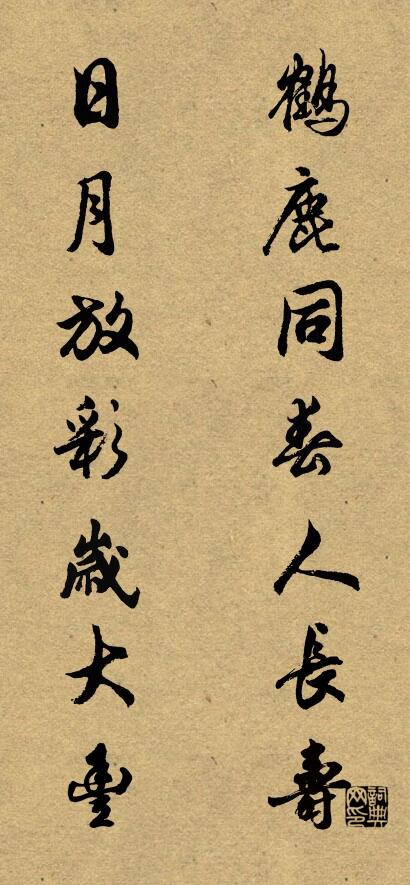 鶴鹿同春人長壽
日月放彩歲大豐
詞典網印